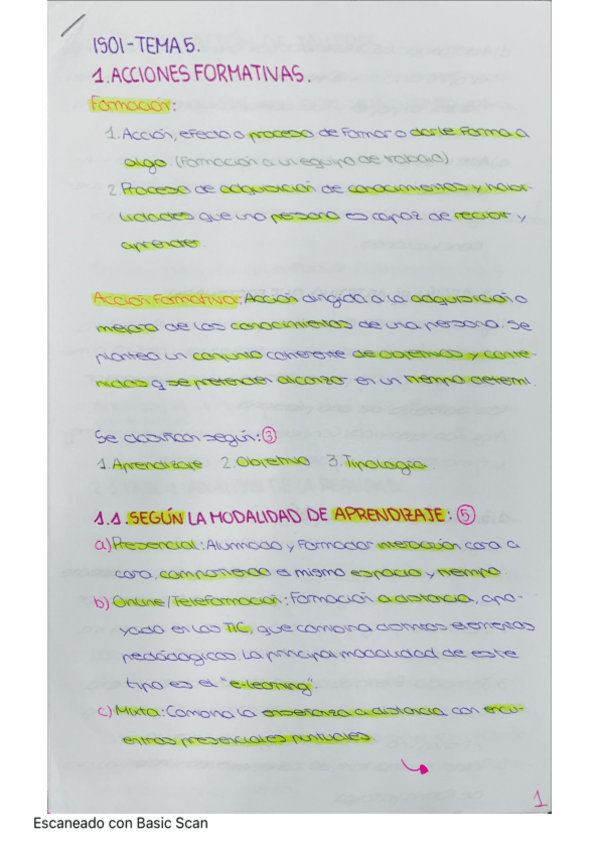 ISOI-TEMA 5.
1. ACCIONES FORMATIVAS.
Formación:
1. Acción, efecto o proceso de formar o darle forma a
algo. (Formación a un equipo de trabajo)
2. Proceso de adquisición de conocimientos y habi-
lidades que una persona es capaz de recibir y
aprender.
Acción Formativa: Acción dirigida a la adquisición o
mejora de los conocimientos de una persona. Se
plantea un conjunto coherente de objetivos y conte-
nidos q se pretenden alcanzar en un tiempo determi.
Se clasifican según: 3
1. Aprendizaje 2. Objetivo 3. Tipología.
1.1. SEGÚN LA MODALIDAD DE APRENDIZAJE: 5
a) Presencial: Alumnado y Formador interacción cara a
cara, compartiendo el mismo espacio y tiempo
b) Online/Teleformación: Formación a distancia, apo-
yado en las TIC, que combina distintos elementos
pedádogicos. La principal modalidad de este
tipo es el "e-learning".
c) Mixta: Combina la enseñanza a distancia con encu-
entros presenciales puntuales.
1
Escaneado con Basic Scan